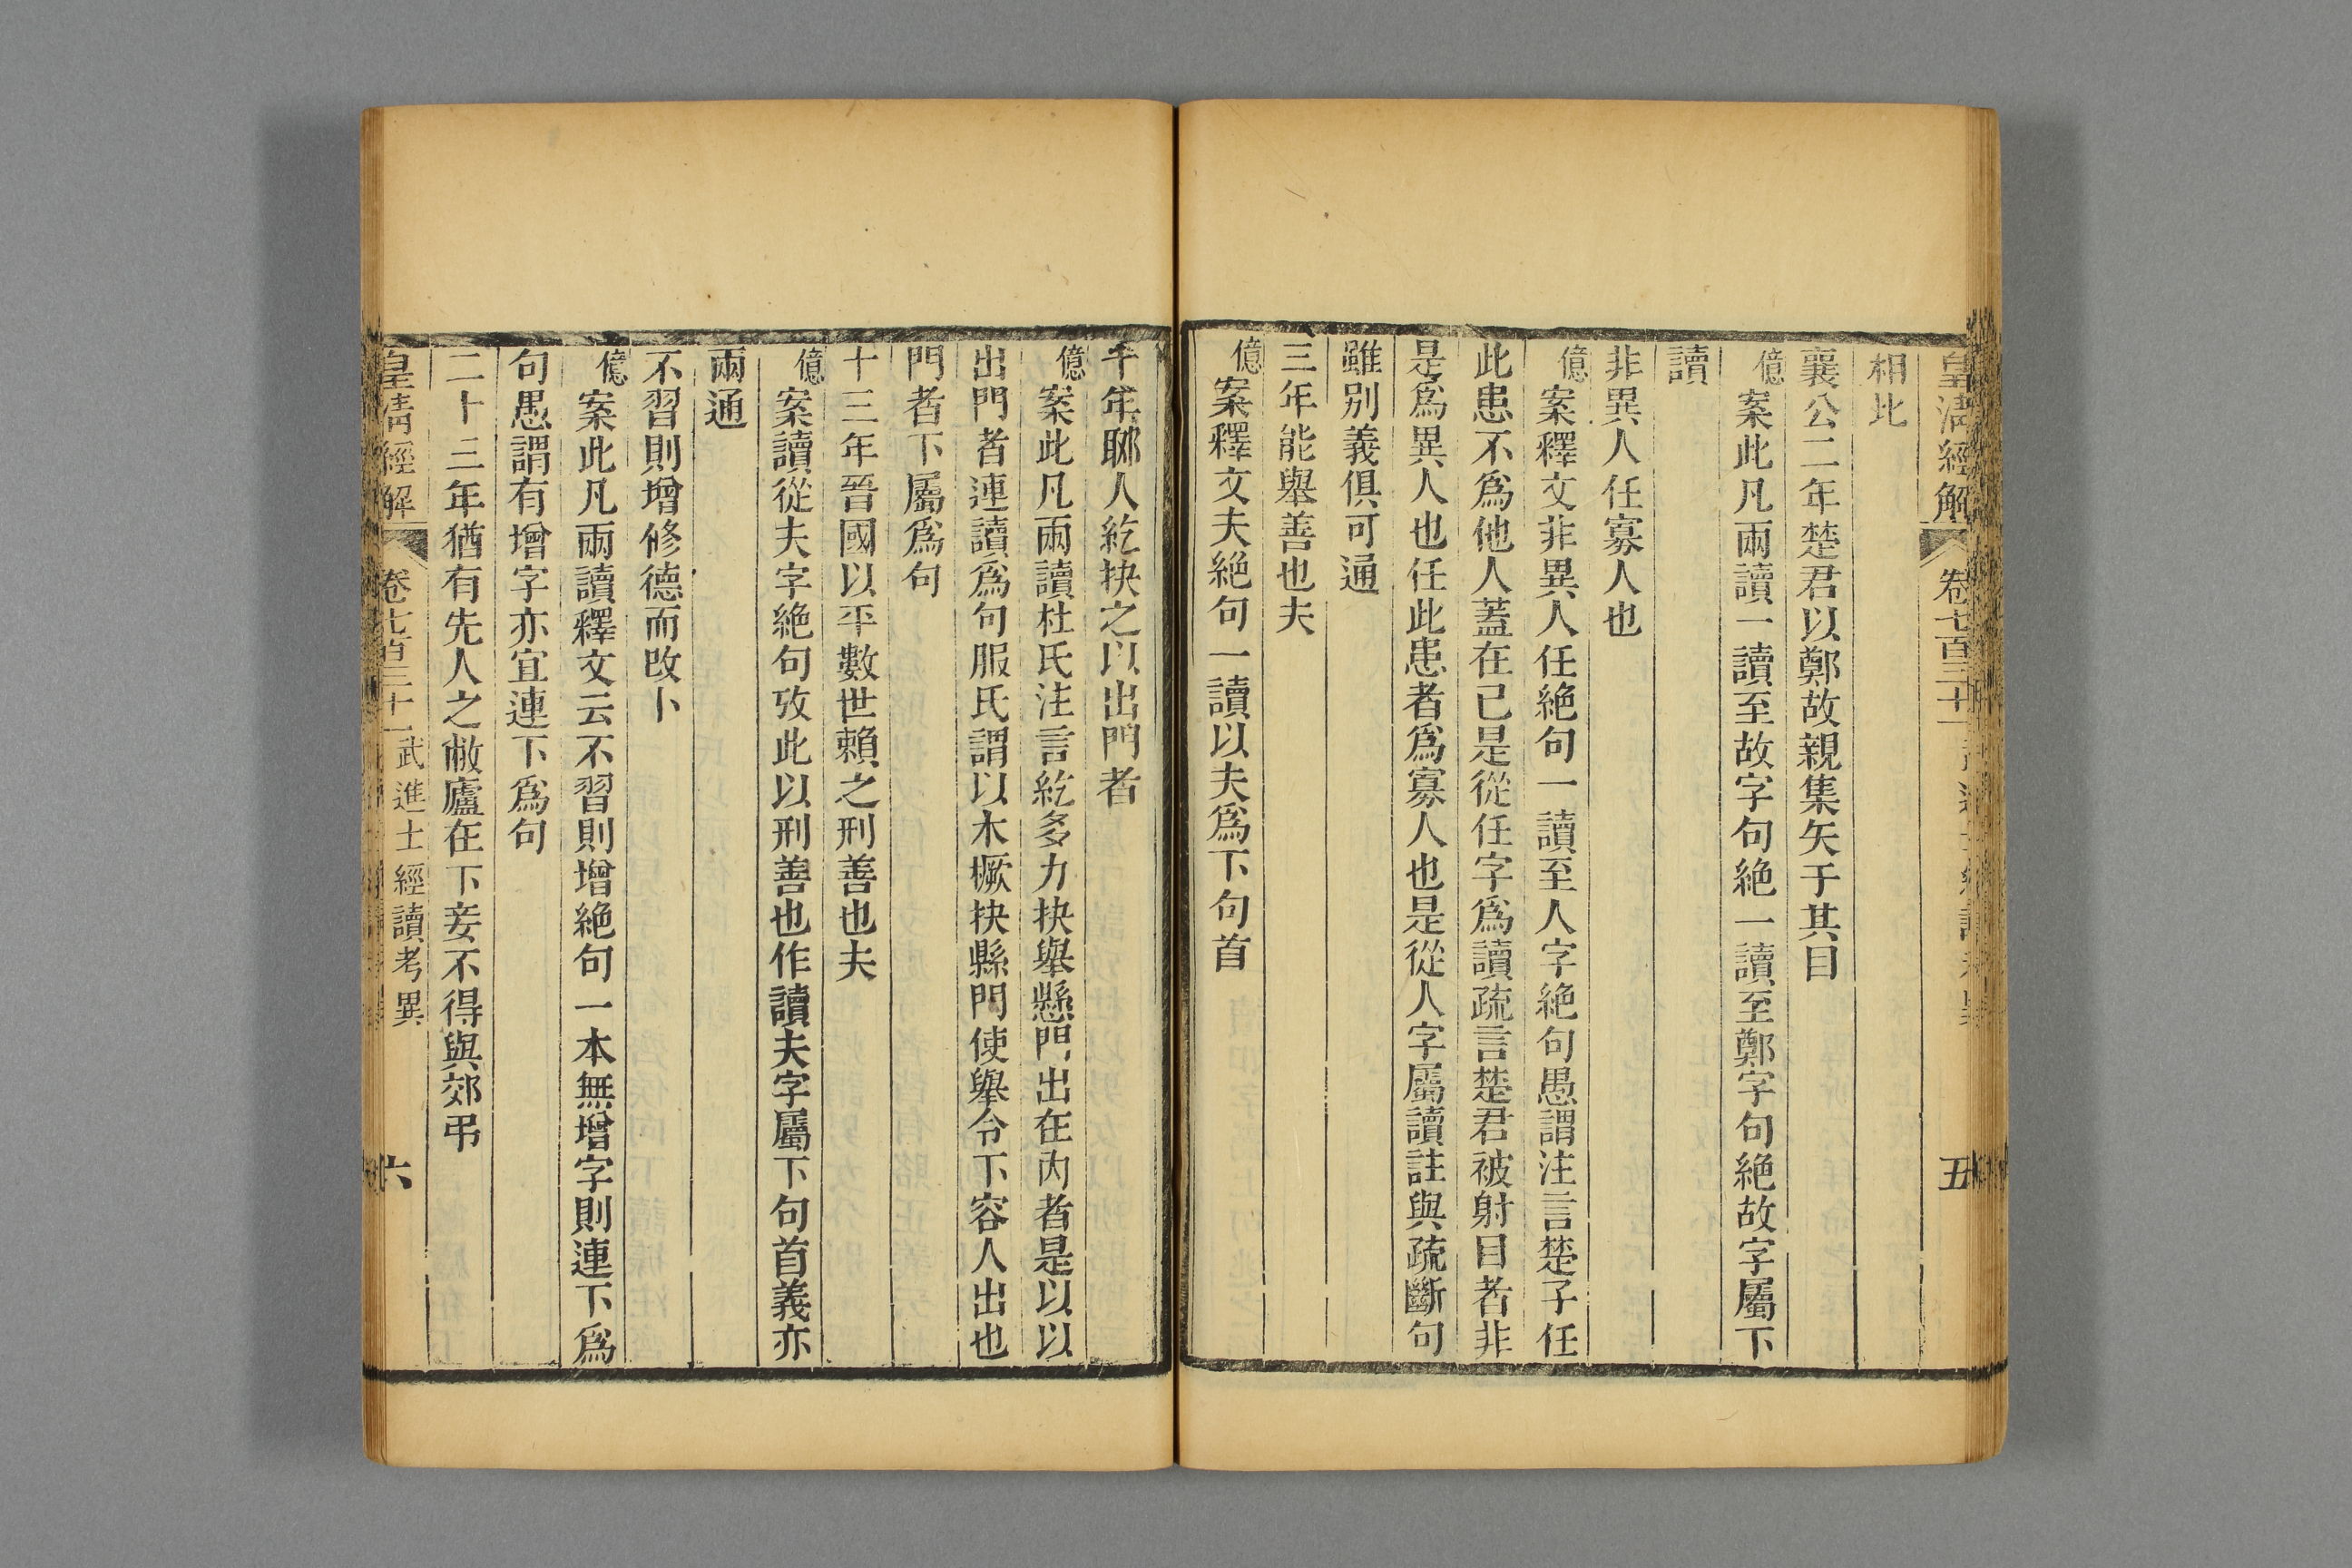 皇淸經解
卷七百三十一
五
相比
襄公二年楚君以鄭故親集矢于其目
億案此凡兩讀一讀至故字句絶一讀至鄭字句絶故字屬下
讀
非異人任寡人也
億案釋文非異人任絶句一讀至人字絶句愚謂注言楚子任
此患不爲他人蓋在己是從任字爲讀疏言楚君被射目者非
是爲異人也任此患者爲寡人也是從人字屬讀註與疏斷句
雖别義俱可通
三年能舉善也夫
億案釋文夫絶句一讀以夫爲下句首
十年郰人紇抉之以出門者
億案此凡兩讀杜氏注言紇多力抉舉懸門出在内者是以以
出門者連讀爲句服氏謂以木橛抉縣門使舉令下容人出也
門者下屬爲句
十三年晉國以平數世賴之刑善也夫
億案讀從夫字絶句攷此以刑善也作讀夫字屬下句首義亦
兩通
不習則增修德而改卜
億案此凡兩讀釋文云不習則增絶句一本無增字則連下爲
句愚謂有增字亦宜連下爲句
二十三年猶有先人之敝廬在下妾不得與郊弔
皇淸經解
卷七百三十一
武進士經讀考異
六